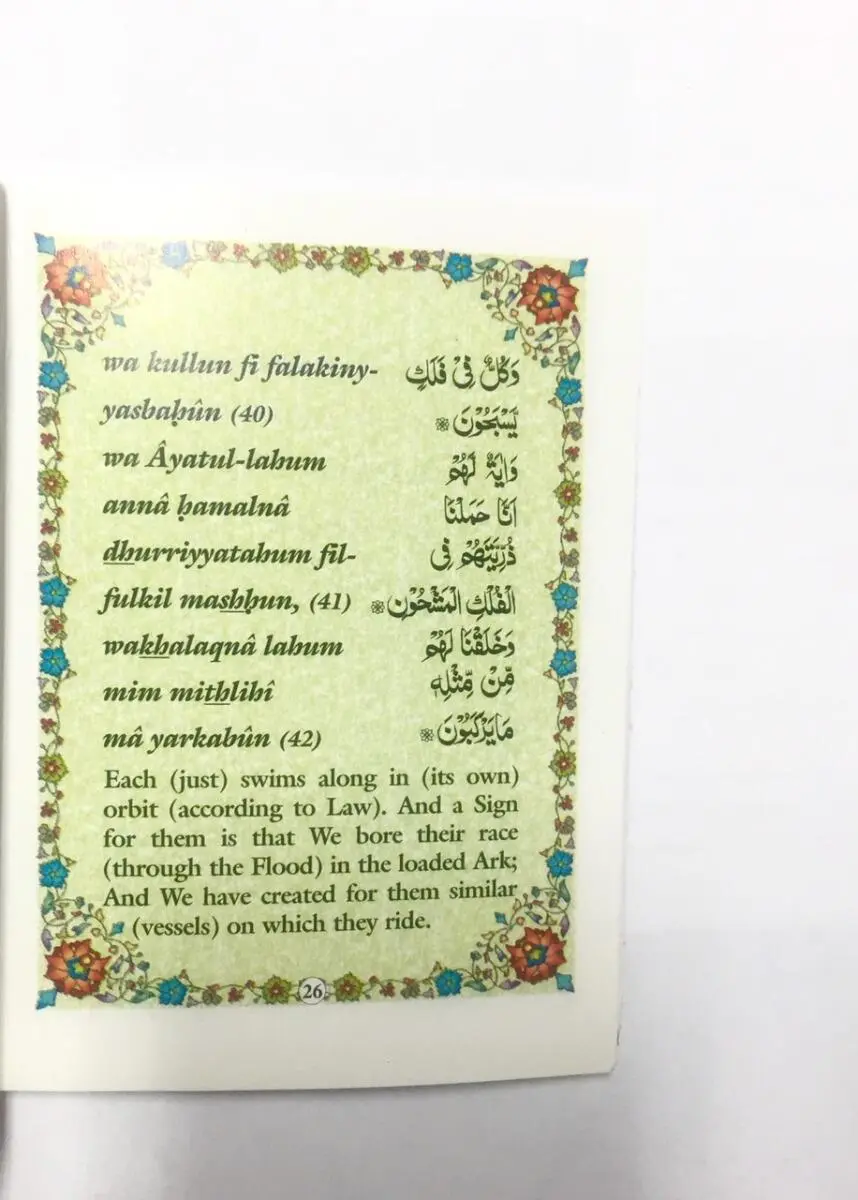 wa kullun fi falakiny-
وَكُلٌّ فِيْ فَلَكٍ
yasbaḥûn (40)
يَّسْبَحُوْنَ
wa Âyatul-lahum
وَاٰيَةٌ لَّهُمْ
annâ ḥamalnâ
اَنَّا حَمَلْنَا
dhurriyyatahum fil-
ذُرِّيَّتَهُمْ فِى
fulkil mashḥun, (41)
الْفُلْكِ الْمَشْحُوْنِ
wakhalaqnâ lahum
وَخَلَقْنَا لَهُمْ
mim mithlihî
مِّنْ مِّثْلِهٖ
mâ yarkabûn (42)
مَايَرْكَبُوْنَ
Each (just) swims along in (its own)
orbit (according to Law). And a Sign
for them is that We bore their race
(through the Flood) in the loaded Ark;
And We have created for them similar
(vessels) on which they ride.
26